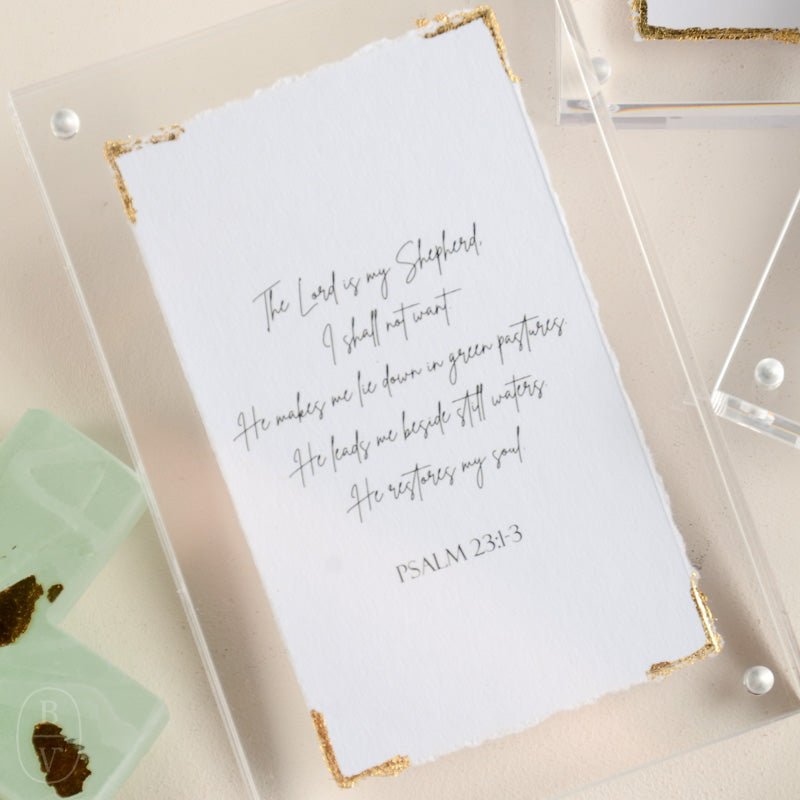 The Lord is my Shepherd,
I shall not want
He makes me lie down in green pastures.
He leads me beside still waters.
He restores my soul
PSALM 23:1-3
B
V